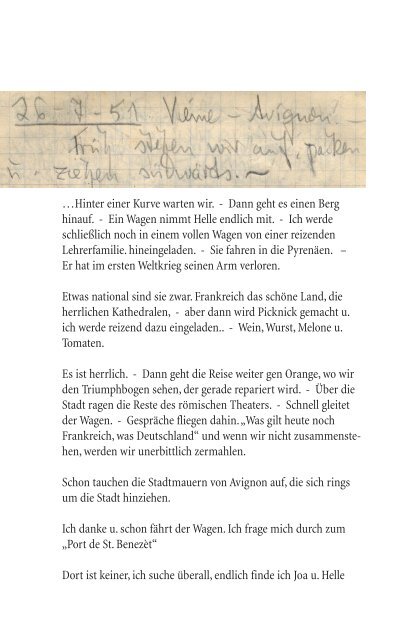 26-7-51. Viene - Avignon. -
früh stehen wir auf, packen
u. ziehen südwärds. -
…Hinter einer Kurve warten wir. - Dann geht es einen Berg
hinauf. - Ein Wagen nimmt Helle endlich mit. - Ich werde
schließlich noch in einem vollen Wagen von einer reizenden
Lehrerfamilie. hineingeladen. - Sie fahren in die Pyrenäen. –
Er hat im ersten Weltkrieg seinen Arm verloren.
Etwas national sind sie zwar. Frankreich das schöne Land, die
herrlichen Kathedralen, - aber dann wird Picknick gemacht u.
ich werde reizend dazu eingeladen.. - Wein, Wurst, Melone u.
Tomaten.
Es ist herrlich. - Dann geht die Reise weiter gen Orange, wo wir
den Triumphbogen sehen, der gerade repariert wird. - Über die
Stadt ragen die Reste des römischen Theaters. - Schnell gleitet
der Wagen. - Gespräche fliegen dahin. „Was gilt heute noch
Frankreich, was Deutschland“ und wenn wir nicht zusammenste-
hen, werden wir unerbittlich zermahlen.
Schon tauchen die Stadtmauern von Avignon auf, die sich rings
um die Stadt hinziehen.
Ich danke u. schon fährt der Wagen. Ich frage mich durch zum
„Port de St. Benezèt“
Dort ist keiner, ich suche überall, endlich finde ich Joa u. Helle